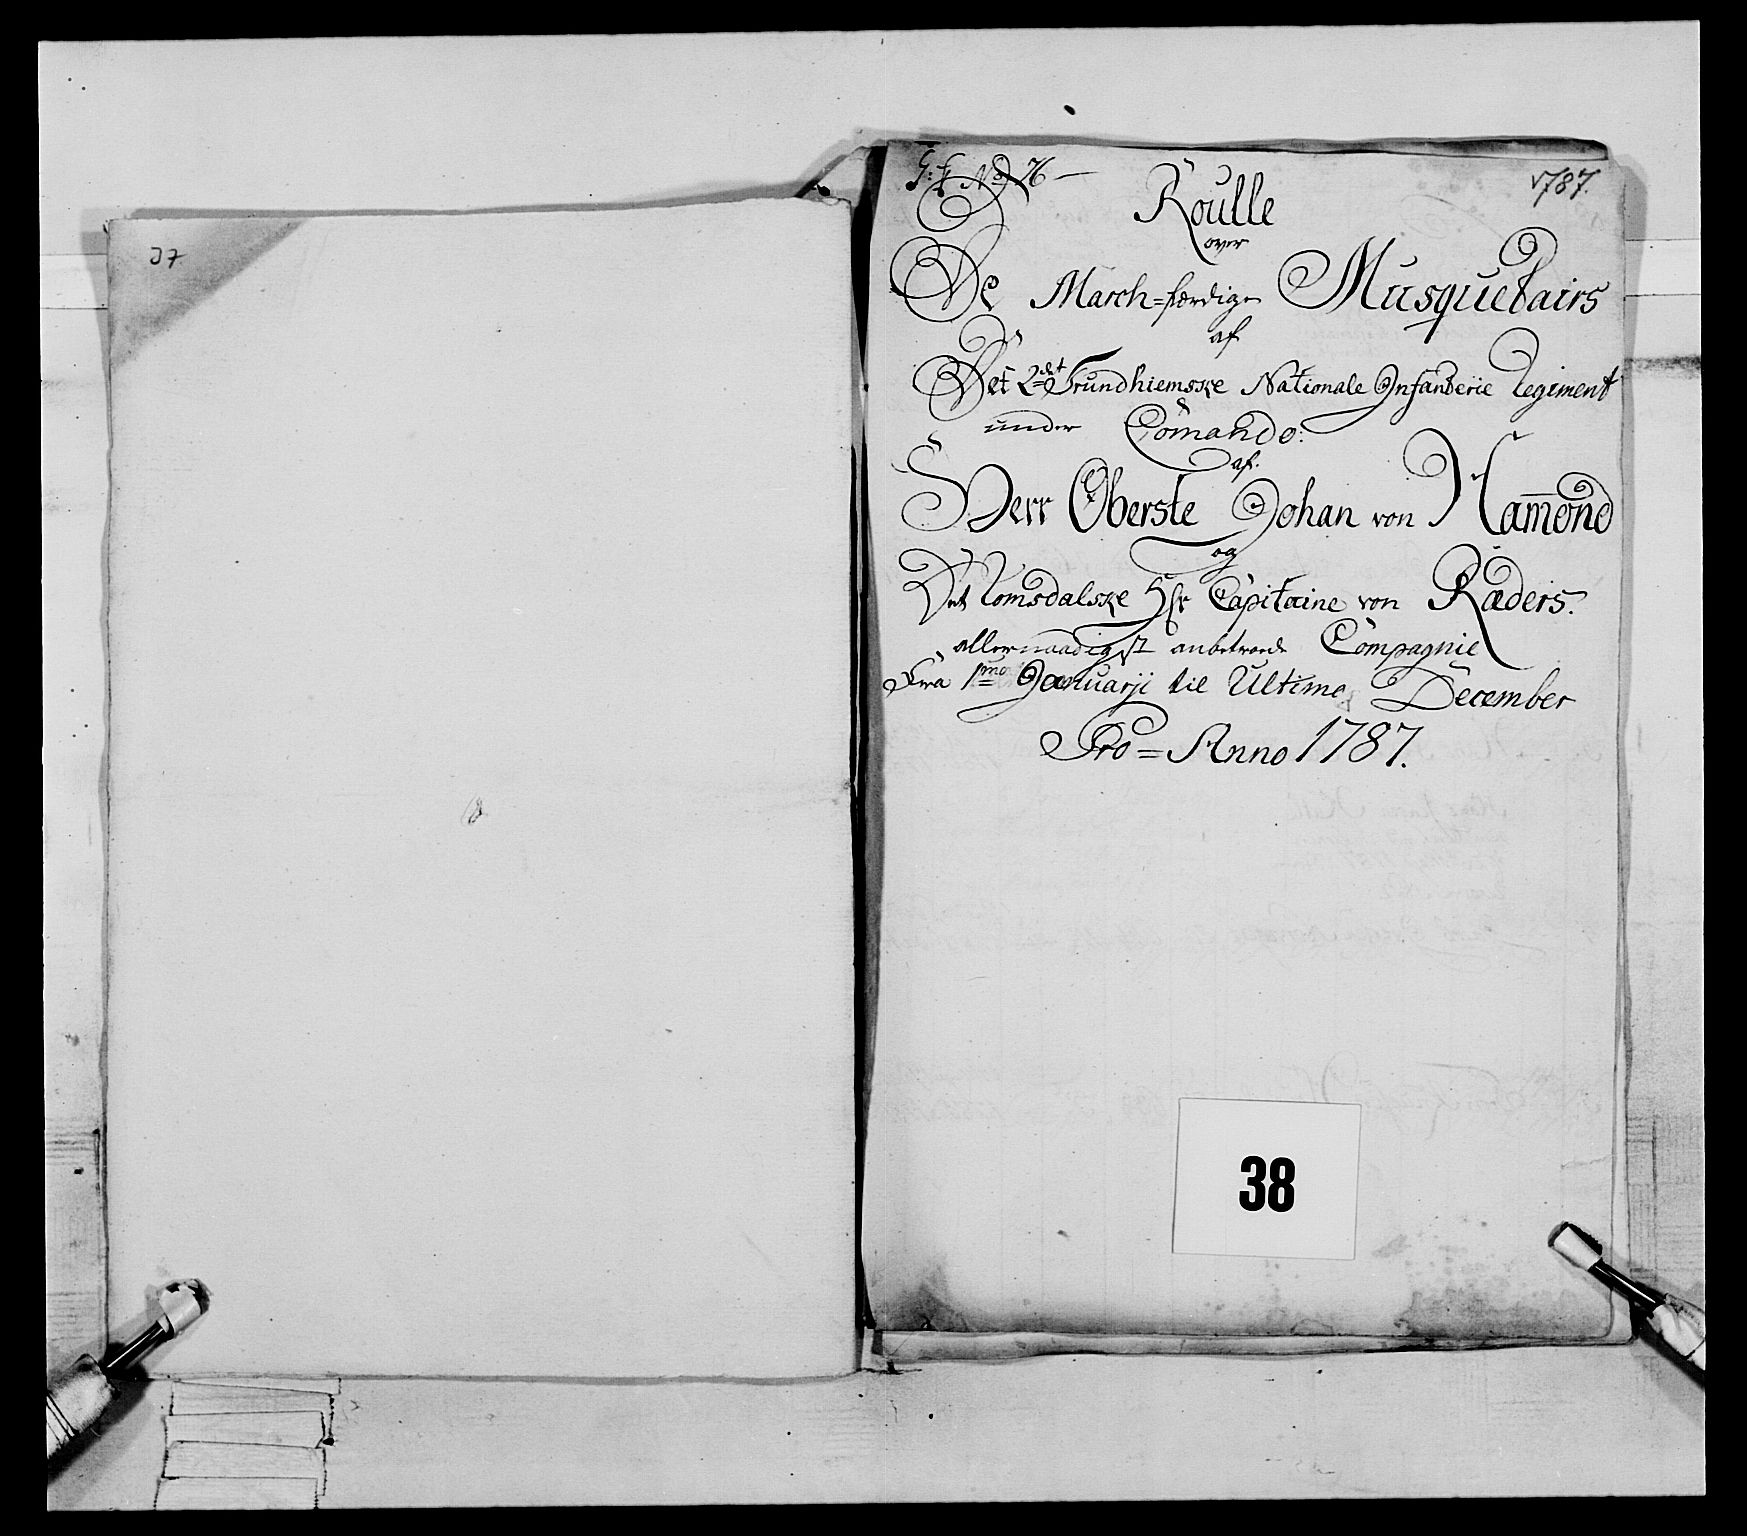 37
No 76 — 1787.
Roulle
over
De March=færdige Musquetairs
af
Det 2det Trundhiemske Nationale Infanterie Regiment
under Comando.
af.
Herr Oberste Johan von Ham̅ond
og
Det Romsdalske Hr Capitaine von Ræders.
allernaadigst anbetroede Compagnie
Fra 1mo Januarji til Ultimo December
Pro = Anno 1787.
38